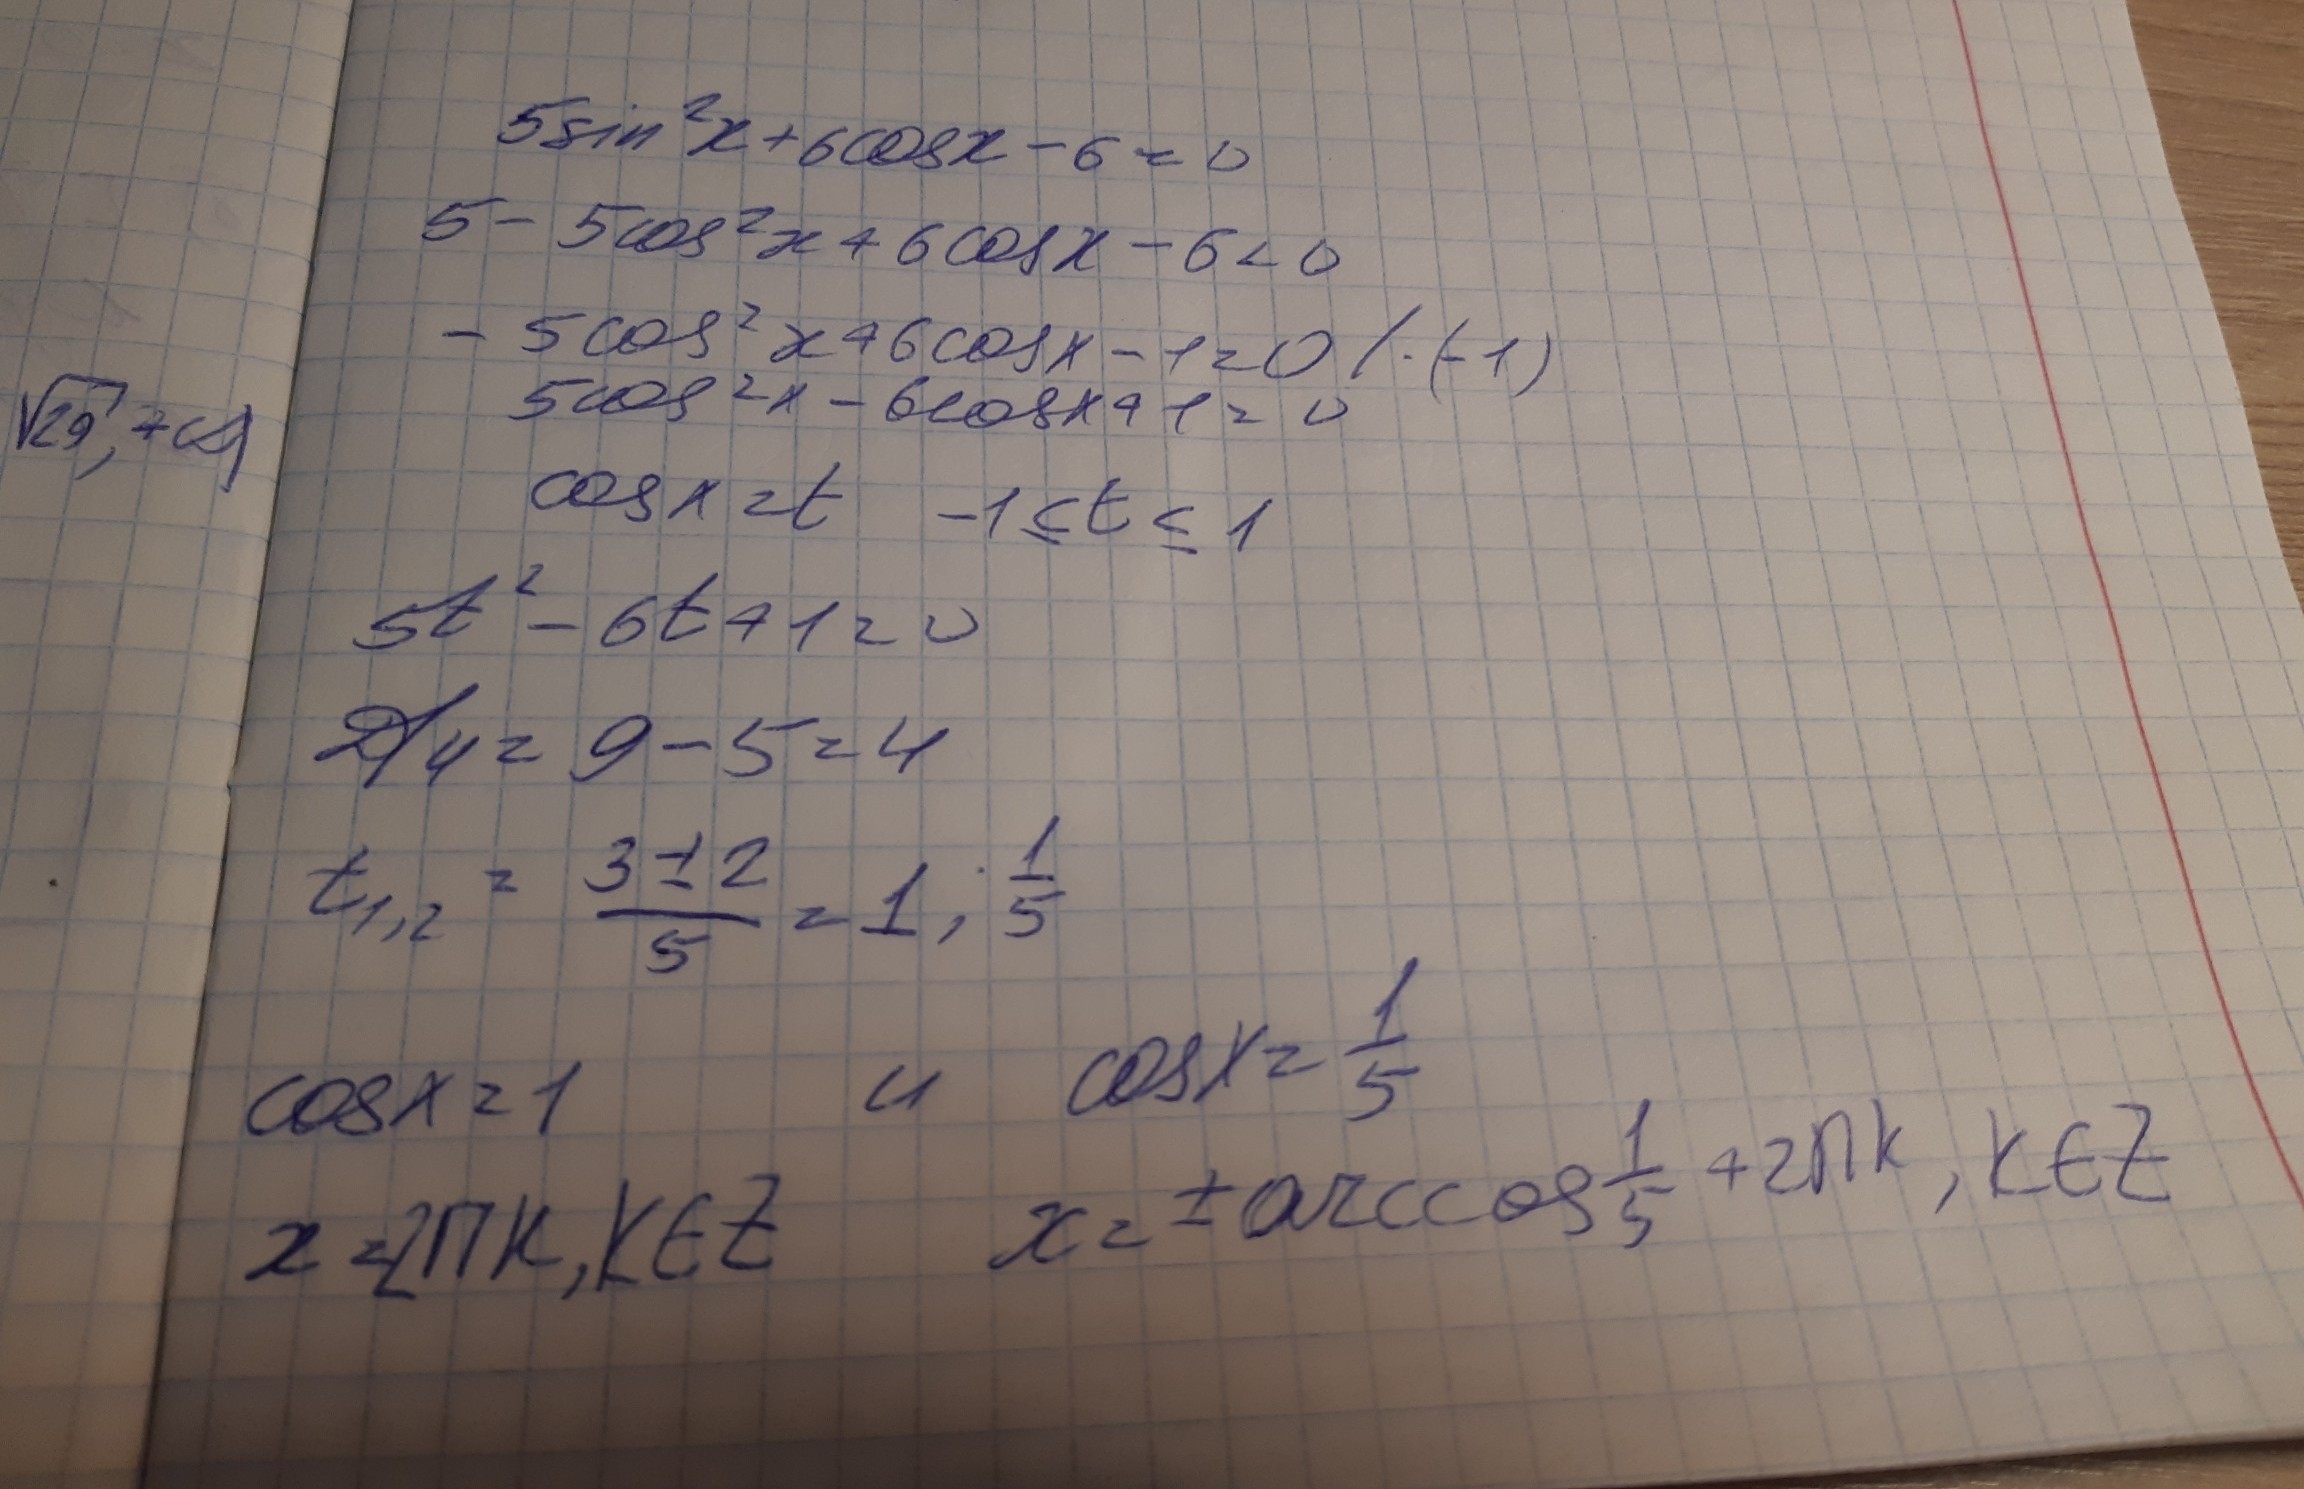 5sin²x+6cosx-6=0
5-5cos²x+6cosx-6=0
-5cos²x+6cosx-1=0 /·(-1)
5cos²x-6cosx+1=0
√29, +∞)
cosx=t -1≤t≤1
5t²-6t+1=0
D/4=9-5=4
t₁,₂ = (3±2)/5 = 1; 1/5
cosx=1 и cosx=1/5
x=2πk, k∈Z x=±arccos 1/5 +2πk, k∈Z